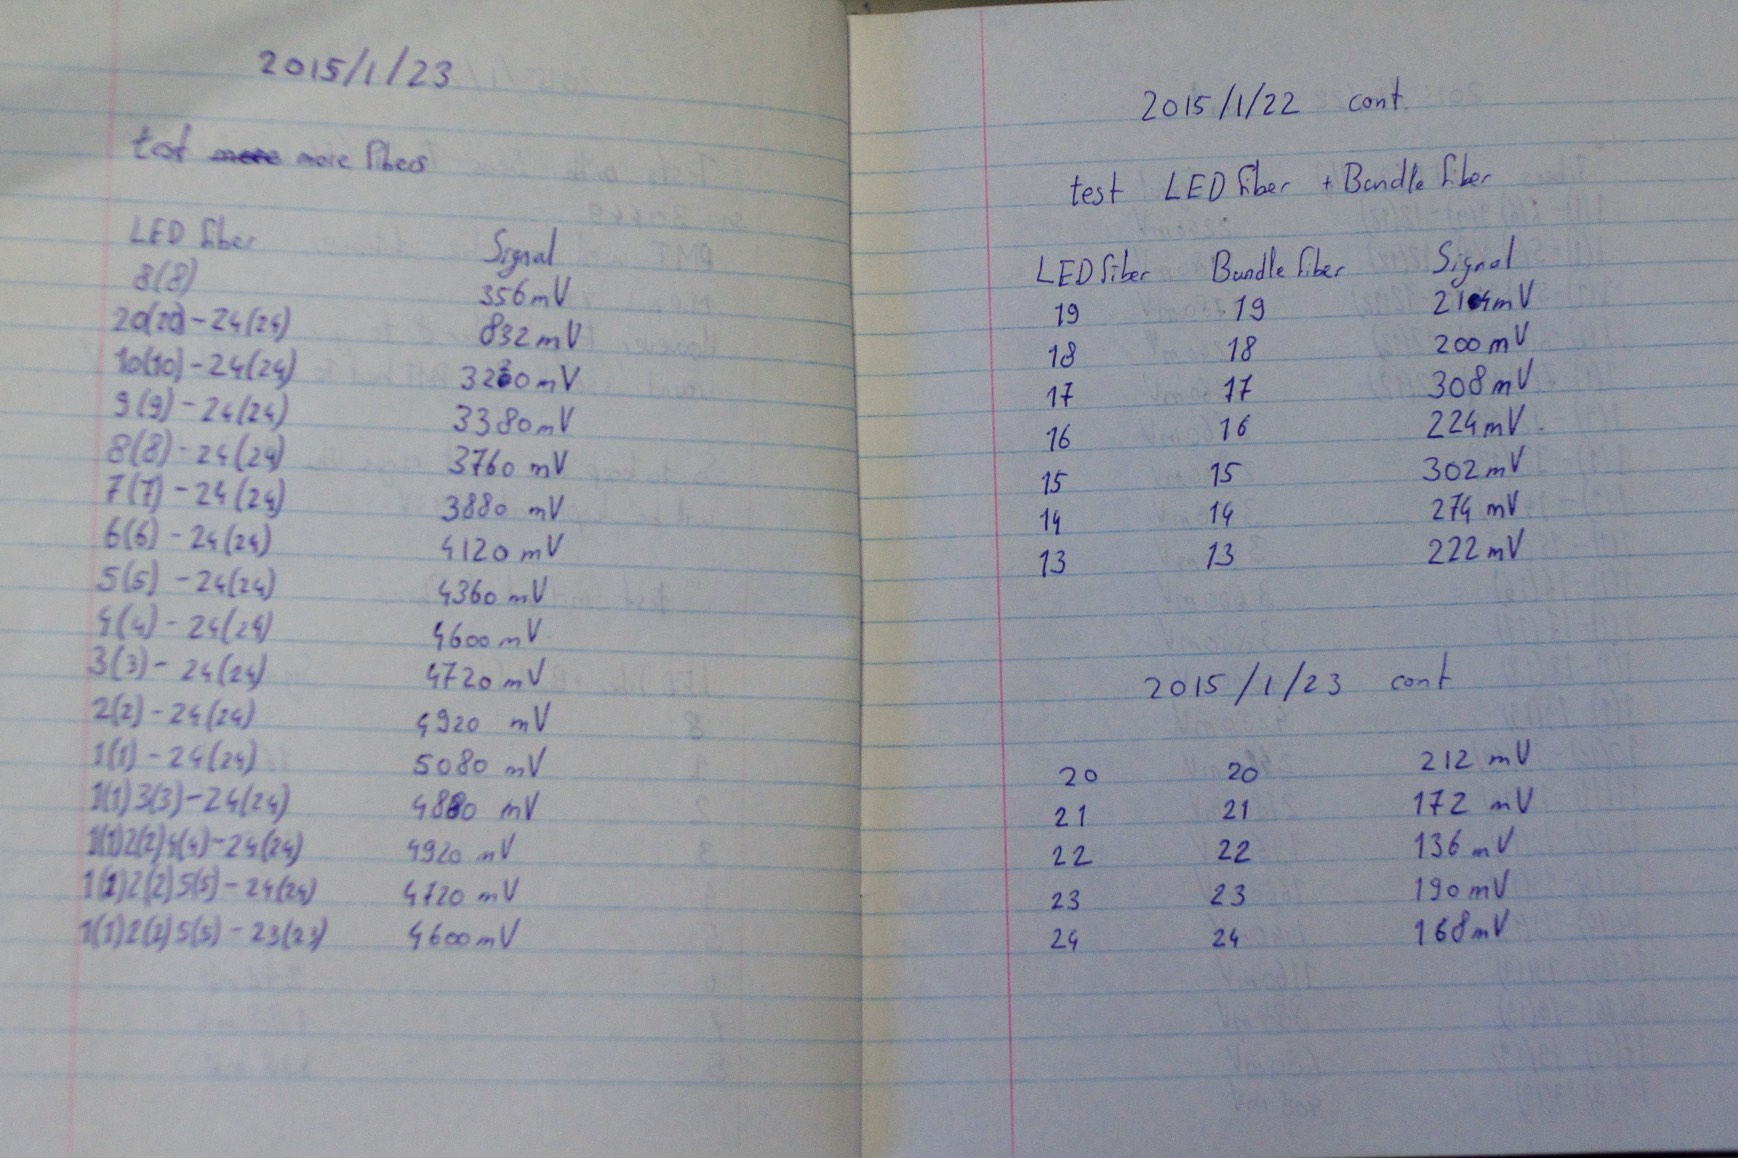 2015/1/23
test more fibers
LED fiber Signal
8(8) 356mV
20(20) - 24(24) 832mV
10(10) - 24(24) 3260mV
9(9) - 24(24) 3380mV
8(8) - 24(24) 3760 mV
7(7) - 24(24) 3880 mV
6(6) - 24(24) 4120 mV
5(5) - 24(24) 4360 mV
4(4) - 24(24) 4600 mV
3(3) - 24(24) 4720 mV
2(2) - 24(24) 4920 mV
1(1) - 24(24) 5080 mV
1(1)3(3) - 24(24) 4880 mV
1(1)2(2)4(4) - 24(24) 4920 mV
1(1)2(2)5(5) - 24(24) 4720 mV
1(1)2(2)5(5) - 23(23) 4600mV
2015/1/22 cont.
test LED fiber + Bundle fiber
LED fiber Bundle fiber Signal
19 19
18 18 200 mV
17 17 308 mV
16 16 224 mV
15 15 302 mV
14 14 274 mV
13 13 222 mV
2015/1/23 cont
20 20 212 mV
21 21 172 mV
22 22 136 mV
23 23 190 mV
24 24 168 mV